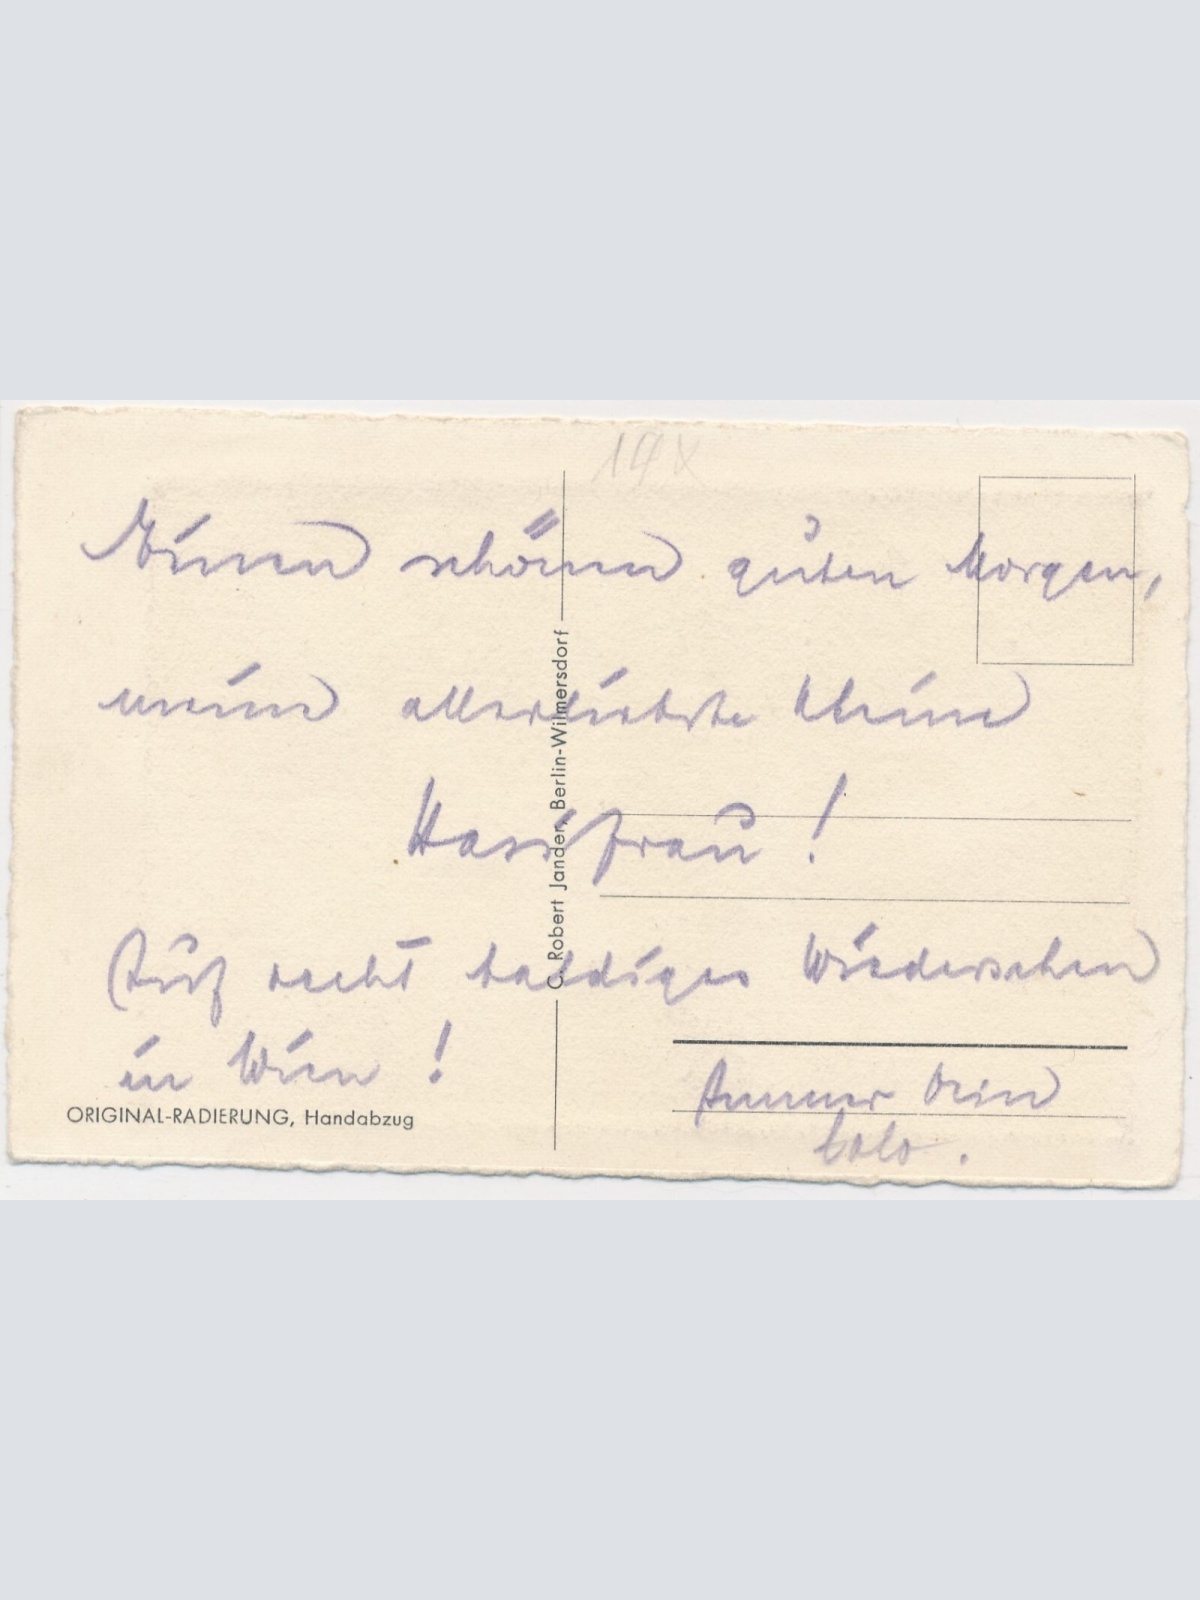 14x
Einen schönen guten Morgen,
meine allerliebste kleine
Hausfrau!
Auf recht baldiges Wiedersehen
in Wien!
Immer Dein
Lolo.
ORIGINAL-RADIERUNG, Handabzug
C. Robert Jander, Berlin-Wilmersdorf